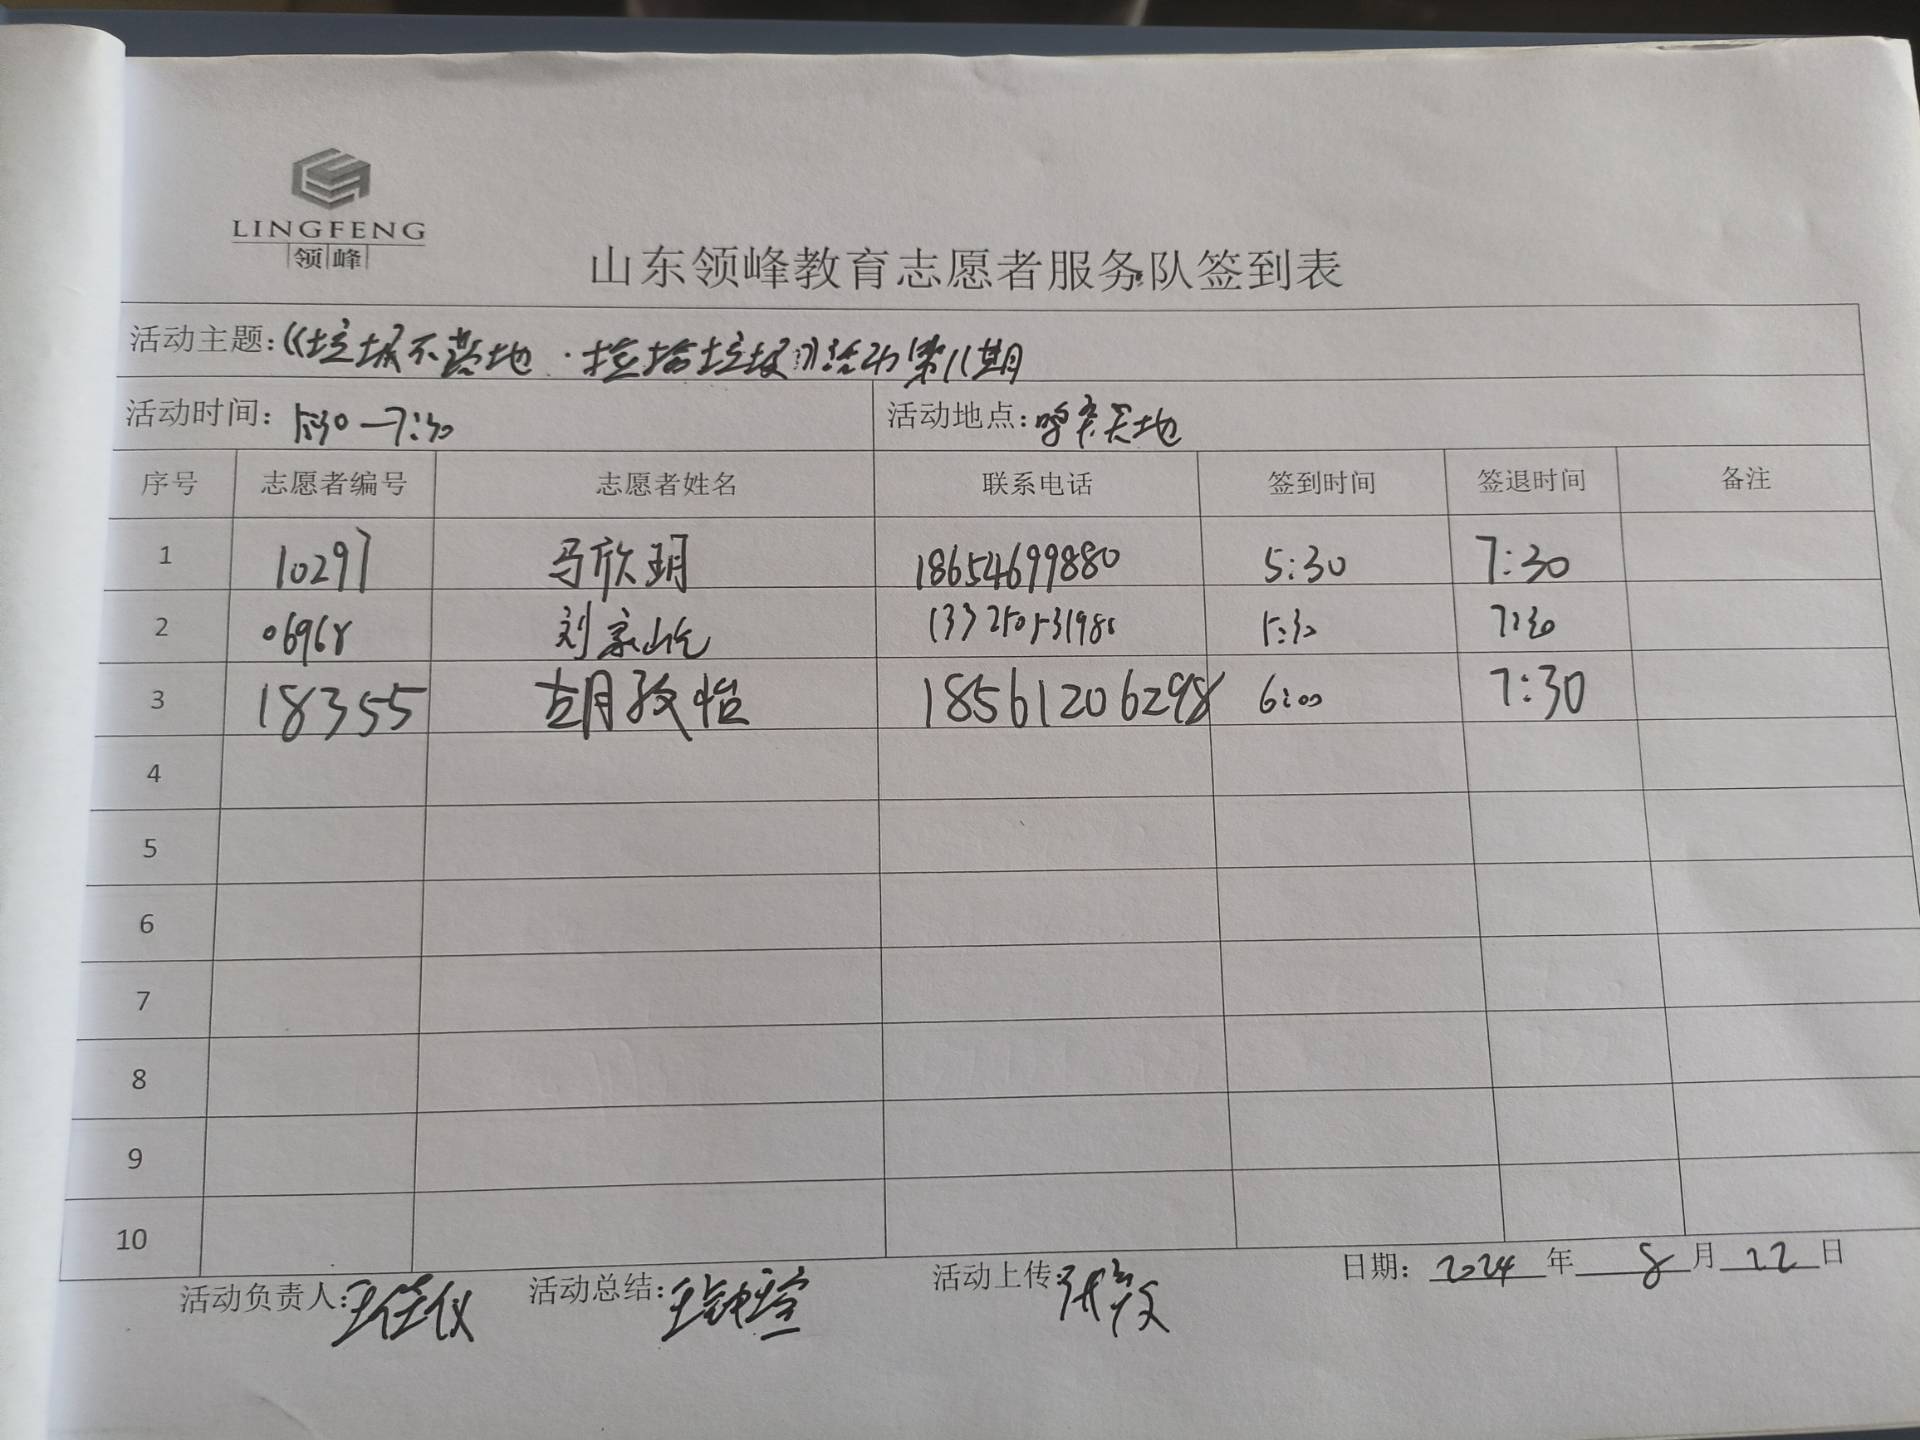 LINGFENG
领峰
山东领峰教育志愿者服务队签到表
活动主题:《垃圾不落地·捡拾垃圾》活动第11期
活动时间: 5:30—7:30 活动地点:
序号 志愿者编号 志愿者姓名 联系电话 签到时间 签退时间 备注
1 10297 马欣玥 18654699880 5:30 7:30
2 06968 刘家屹 5:30 7:30
3 18355 胡孜怡 18561206298 6:00 7:30
4
5
6
7
8
9
10
活动负责人: 王佳仪 活动总结: 活动上传: 日期: 2024 年 8 月 22 日